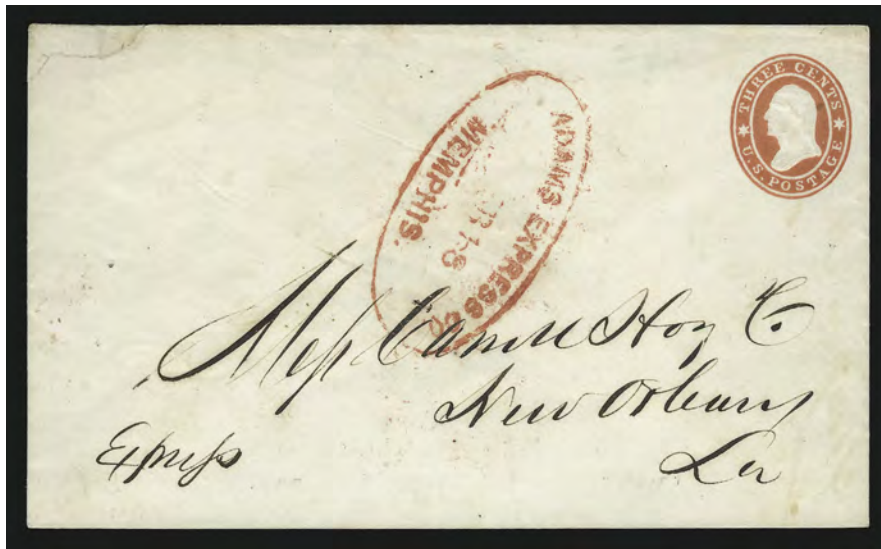 THREE CENTS
U.S. POSTAGE
ADAMS EXPRESS CO.
18
MEMPHIS.
Mess Carroll Hoy & Co.
New Orleans
La
Express